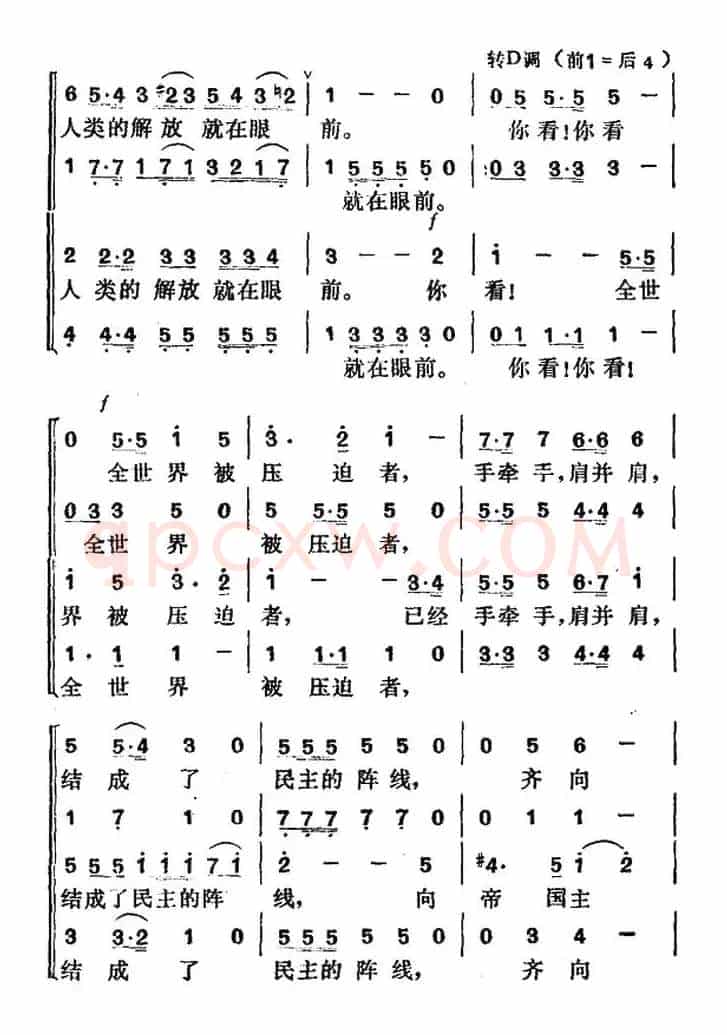 转D调（前1=后4）
6 5·4 3 #23 5 4 3 ♮2 | 1 – – 0 | 0 5 5·5 5 –
人类的解放 就在眼 前。 你看！你看
1 7·7 1 7 1 3 2 1 7 | 1 5 5 5 5 0 | 0 3 3·3 3 –
就在眼前。
f
2 2·2 3 3 3 3 4 | 3 – – 2 | 1 – – 5·5
人 类的 解放 就在眼 前。 你 看！ 全世
4 4·4 5 5 5 5 5 | 1 3 3 3 3 0 | 0 1 1·1 1 –
就在眼前。 你看！你看！
f
0 5·5 1 5 | 3· 2 1 – | 7·7 7 6·6 6
全世界 被 压 迫 者， 手牵手，肩并肩，
0 3 3 5 0 | 5 5·5 5 0 | 5·5 5 4·4 4
全世 界 被 压迫 者，
qpcxw.COM
1 5 3·2 | 1 – – 3·4 | 5·5 5 6·7 1
界 被 压 迫 者， 已经 手牵手，肩并肩，
1· 1 1 – | 1 1·1 1 0 | 3·3 3 4·4 4
全 世 界 被 压迫 者，
5 5·4 3 0 | 5 5 5 5 5 0 | 0 5 6 –
结 成 了 民主的 阵 线， 齐 向
1 7 1 0 | 7 7 7 7 7 0 | 0 1 1 –
5 5 5 1 1 1 7 1 | 2 – – 5 | #4· 5 1 2
结成了民主的阵 线， 向 帝 国主
3 3·2 1 0 | 5 5 5 5 5 0 | 0 3 4 –
结 成 了 民主的 阵 线， 齐 向